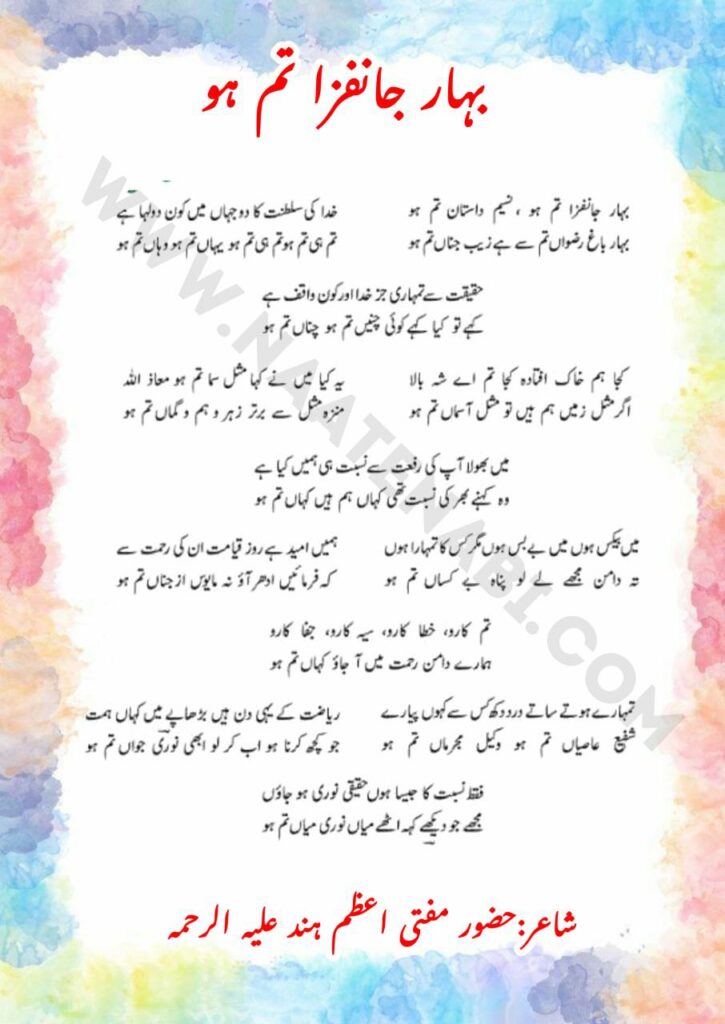 بہار جانفزا تم ہو
بہار جانفزا تم ہو ، نسیم داستان تم ہو
بہار باغ رضواں تم سے ہے زیب جناں تم ہو
خدا کی سلطنت کا دو جہاں میں کون دولہا ہے
تم ہی تم ہو تم ہی تم ہو یہاں تم ہو وہاں تم ہو
حقیقت سے تمہاری جز خدا اور کون واقف ہے
کہے تو کیا کہے کوئی چنیں تم ہو چناں تم ہو
کجا ہم خاک افتادہ کجا تم اے شہ بالا
اگر مثل زمیں ہم ہیں تو مثل آسماں تم ہو
یہ کیا میں نے کہا مثل سما تم ہو معاذ اللہ
منزہ مثل سے برتر زہر و ہم و گماں تم ہو
میں بھولا آپ کی رفعت سے نسبت ہی ہمیں کیا ہے
وہ کہنے بھر کی نسبت تھی کہاں ہم ہیں کہاں تم ہو
میں بیکس ہوں میں بے بس ہوں مگر کس کا تمہارا ہوں
تہ دامن مجھے لے لو پناہ بے کساں تم ہو
ہمیں امید ہے روز قیامت ان کی رحمت سے
کہ فرمائیں ادھر آؤ نہ مایوس از جناں تم ہو
تم کارو، خطا کارو، سیہ کارو، جفا کارو
ہمارے دامن رحمت میں آ جاؤ کہاں تم ہو
تمہارے ہوتے ساتے درد دکھ کس سے کہوں پیارے
شفیع عاصیاں تم ہو وکیل مجرماں تم ہو
ریاضت کے یہی دن ہیں بڑھاپے میں کہاں ہمت
جو کچھ کرنا ہو اب کر لو ابھی نوری جواں تم ہو
فقط نسبت کا جیسا ہوں حقیقی نوری ہو جاؤں
مجھے جو دیکھے کہہ اٹھے میاں نوری میاں تم ہو
شاعر:حضور مفتی اعظم ہند علیہ الرحمہ
WWW.NAATENABI.COM